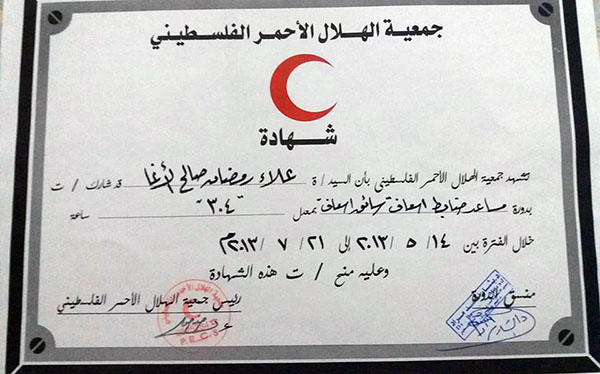 جمعية الهلال الأحمر الفلسطيني
شهادة
تشهد جمعية الهلال الأحمر الفلسطيني بأن السيد / ة علاء رمضان صالح الأغا قد شارك / ت
بدورة مساعد ضابط اسعاف سائق اسعاف بمعدل ٣٠٤ ساعة
خلال الفترة بين ١٤ / ٥ / ٢٠١٣ إلى ٢١ / ٧ / ٢٠١٣م
وعليه منح / ت هذه الشهادة
منسق الدورة
رئيس جمعية الهلال الأحمر الفلسطيني
P.R.C.S